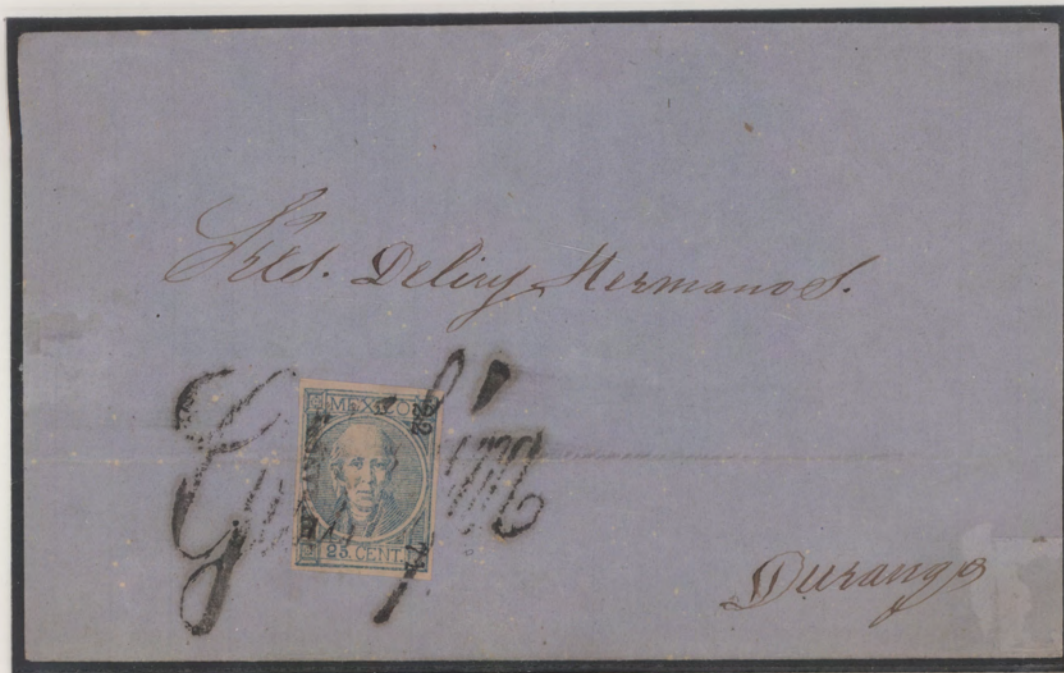 Sres. Delius Hermanos.
MEXICO
22
25. CENT.
71
Durango